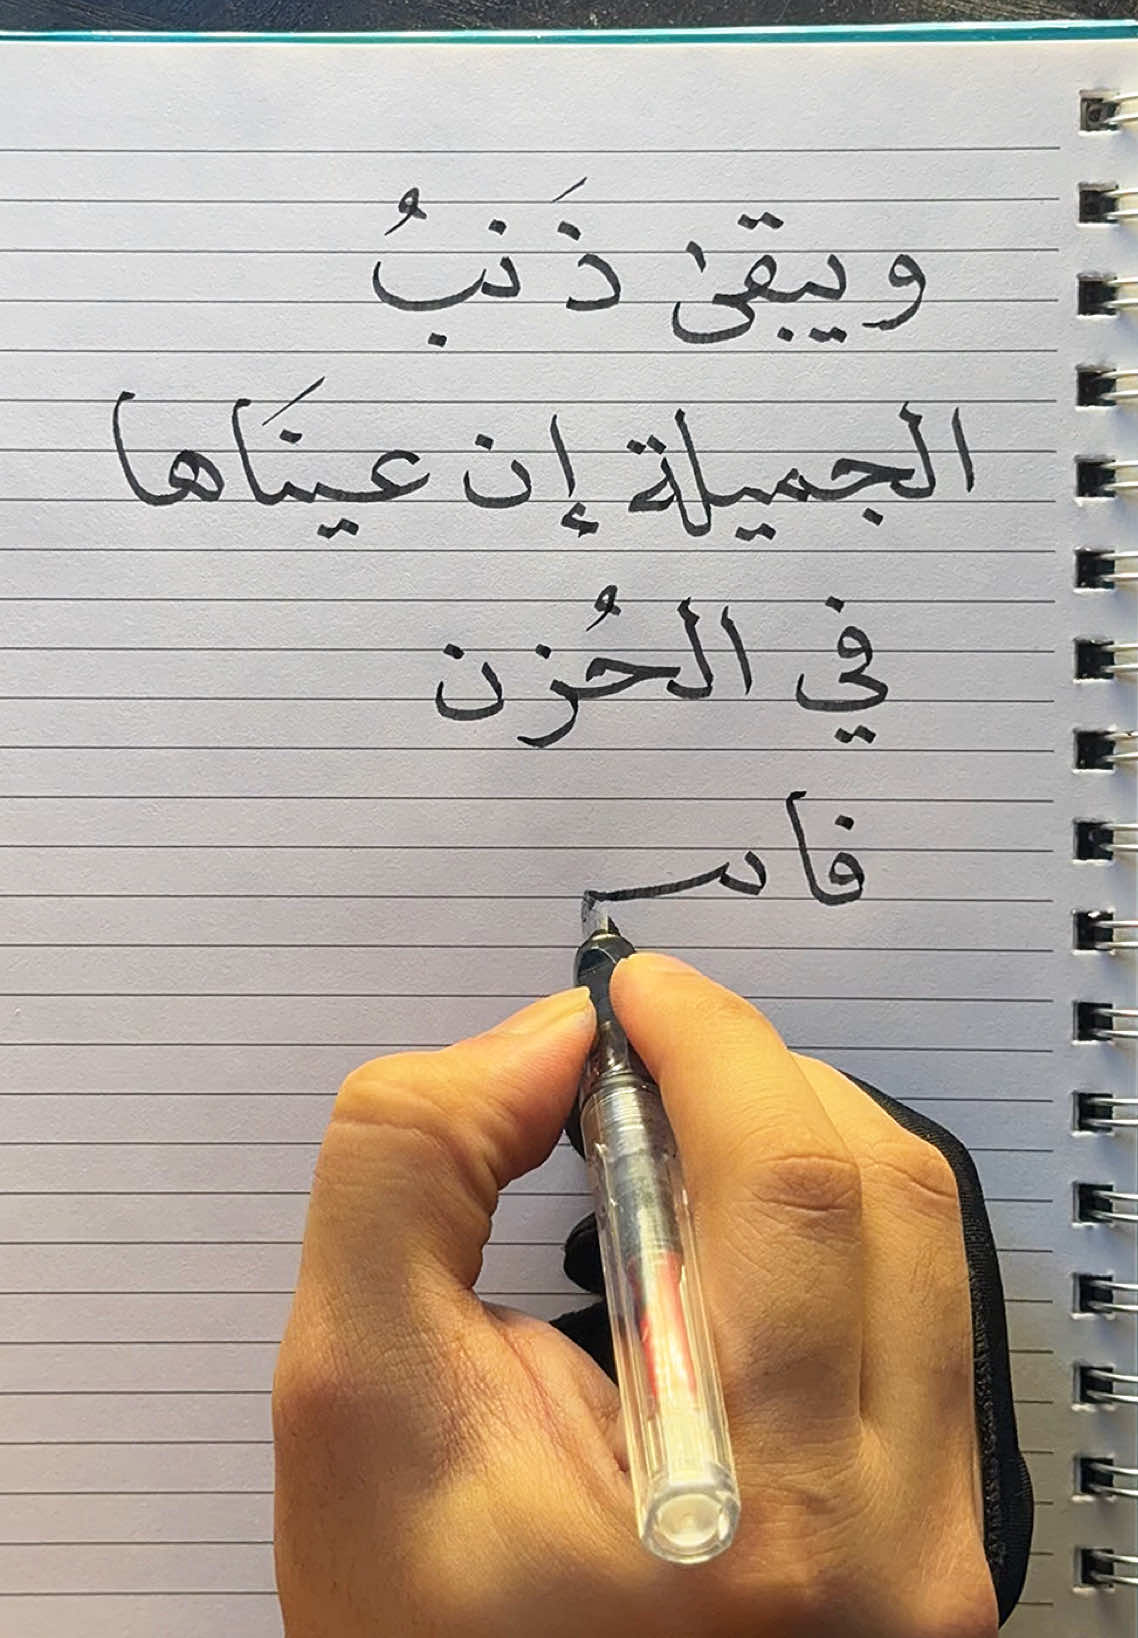 ويبقىٰ ذَنبُ
الجميلة إن عينَاها
في الحُزن
فاس